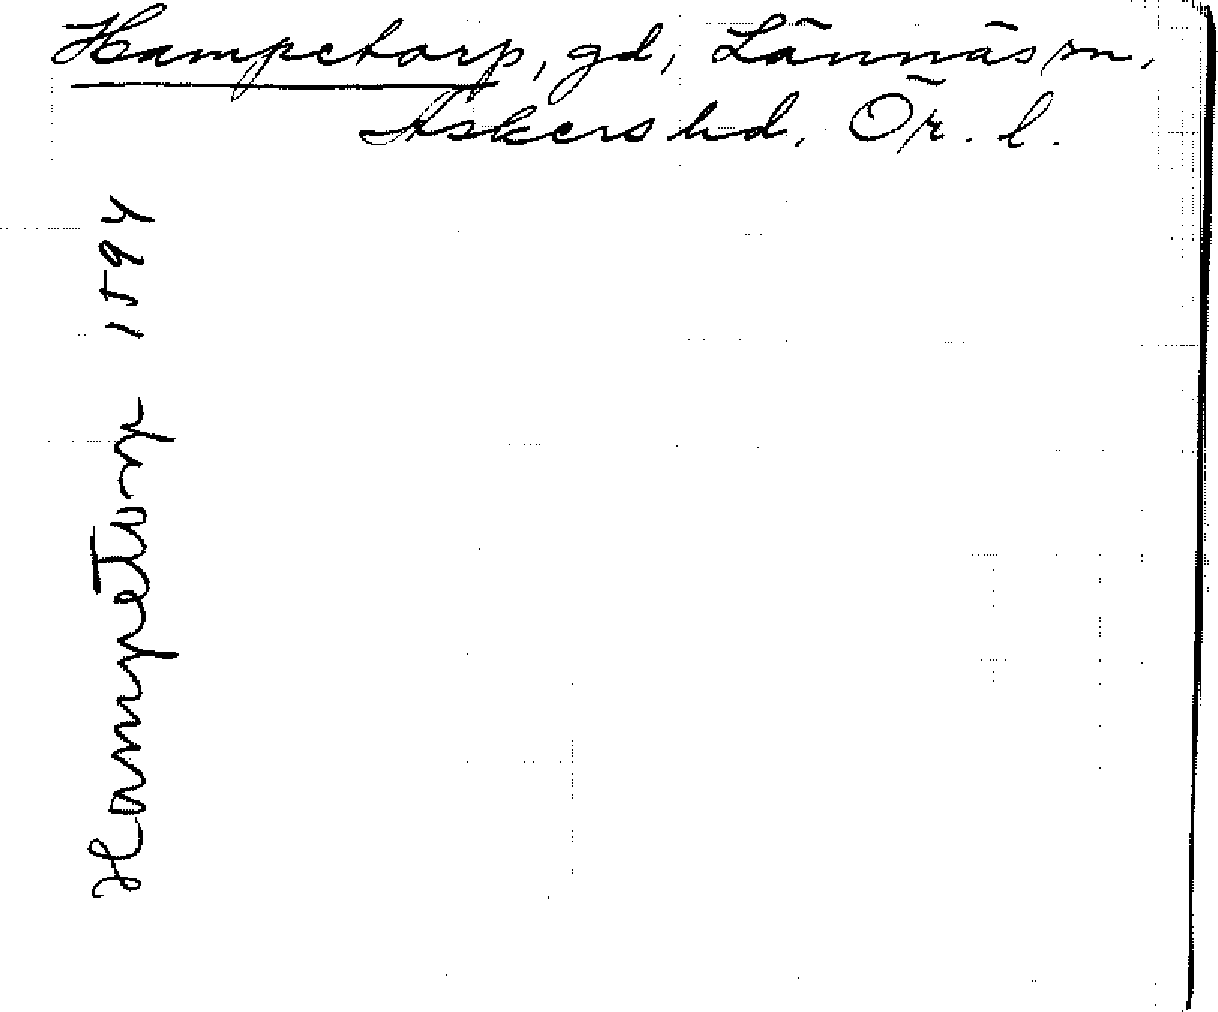 Hampetorp, gd, Lännäs sn,
Askers hd. Ör. l.
Hampetorp 1594